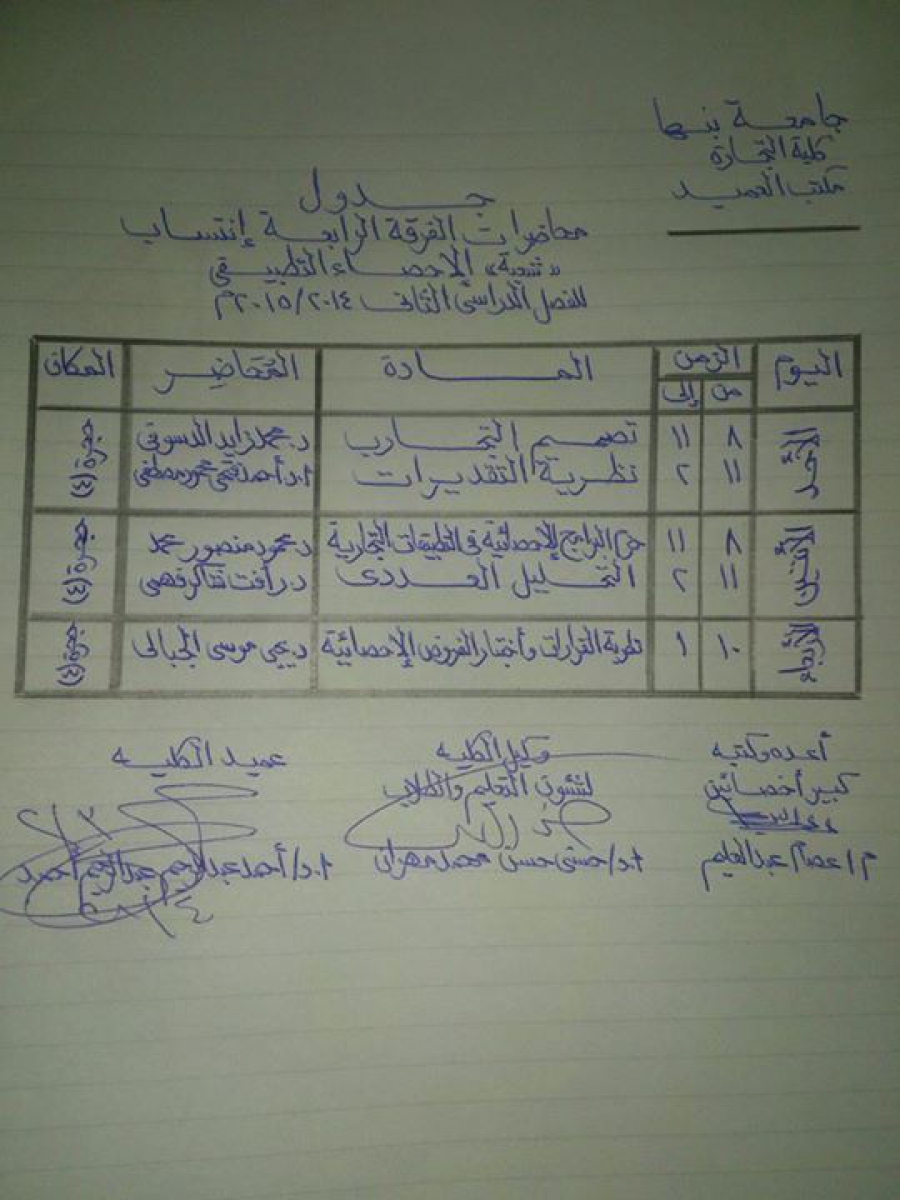 جامعة بنها
كلية التجارة
مكتب العميد
جدول
محاضرات الفرقة الرابعة إنتساب
"شعبة" الإحصاء التطبيقى
للفصل الدراسى الثانى ٢٠١٤/٢٠١٥م
اليوم الزمن المادة المحاضر المكان
من إلى
الأحد ٨ ١١ تصميم التجارب د. محمد زايد الدسوقى حجرة (٤)
١١ ٢ نظرية التقديرات ا.د أحمد فتحى محمود مصطفى
الأثنين ٨ ١١ حزم البرامج الإحصائية فى التطبيقات التجارية د. محمود منصور محمد حجرة (٤)
١١ ٢ التحليل العددى د. رأفت شاكر فهمى
الأربعاء ١٠ ١ نظرية القرارات وأختبار الفروض الإحصائية د. يحيى موسى الجبالى حجرة (٤)
أعده وكتبه وكيل الكليه عميد الكليه
كبير أخصائين لشئون التعليم والطلاب
م/عصام عبد العليم ا.د/حسنى حسن محمد مهران ا.د/أحمد عبد الرحيم أحمد